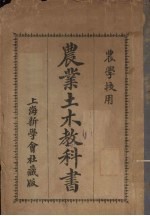 農學後用
農業土木教科書
上海新學會社藏版